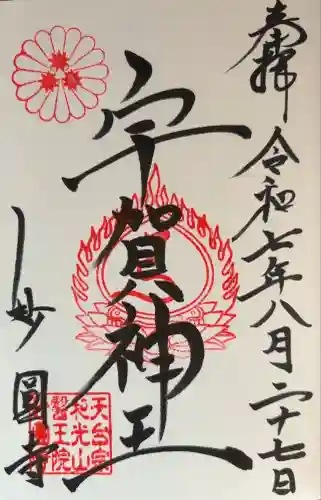 奉拝 令和七年八月二十七日
宇賀神王
妙圓寺
天台宗
和光山
醫王院